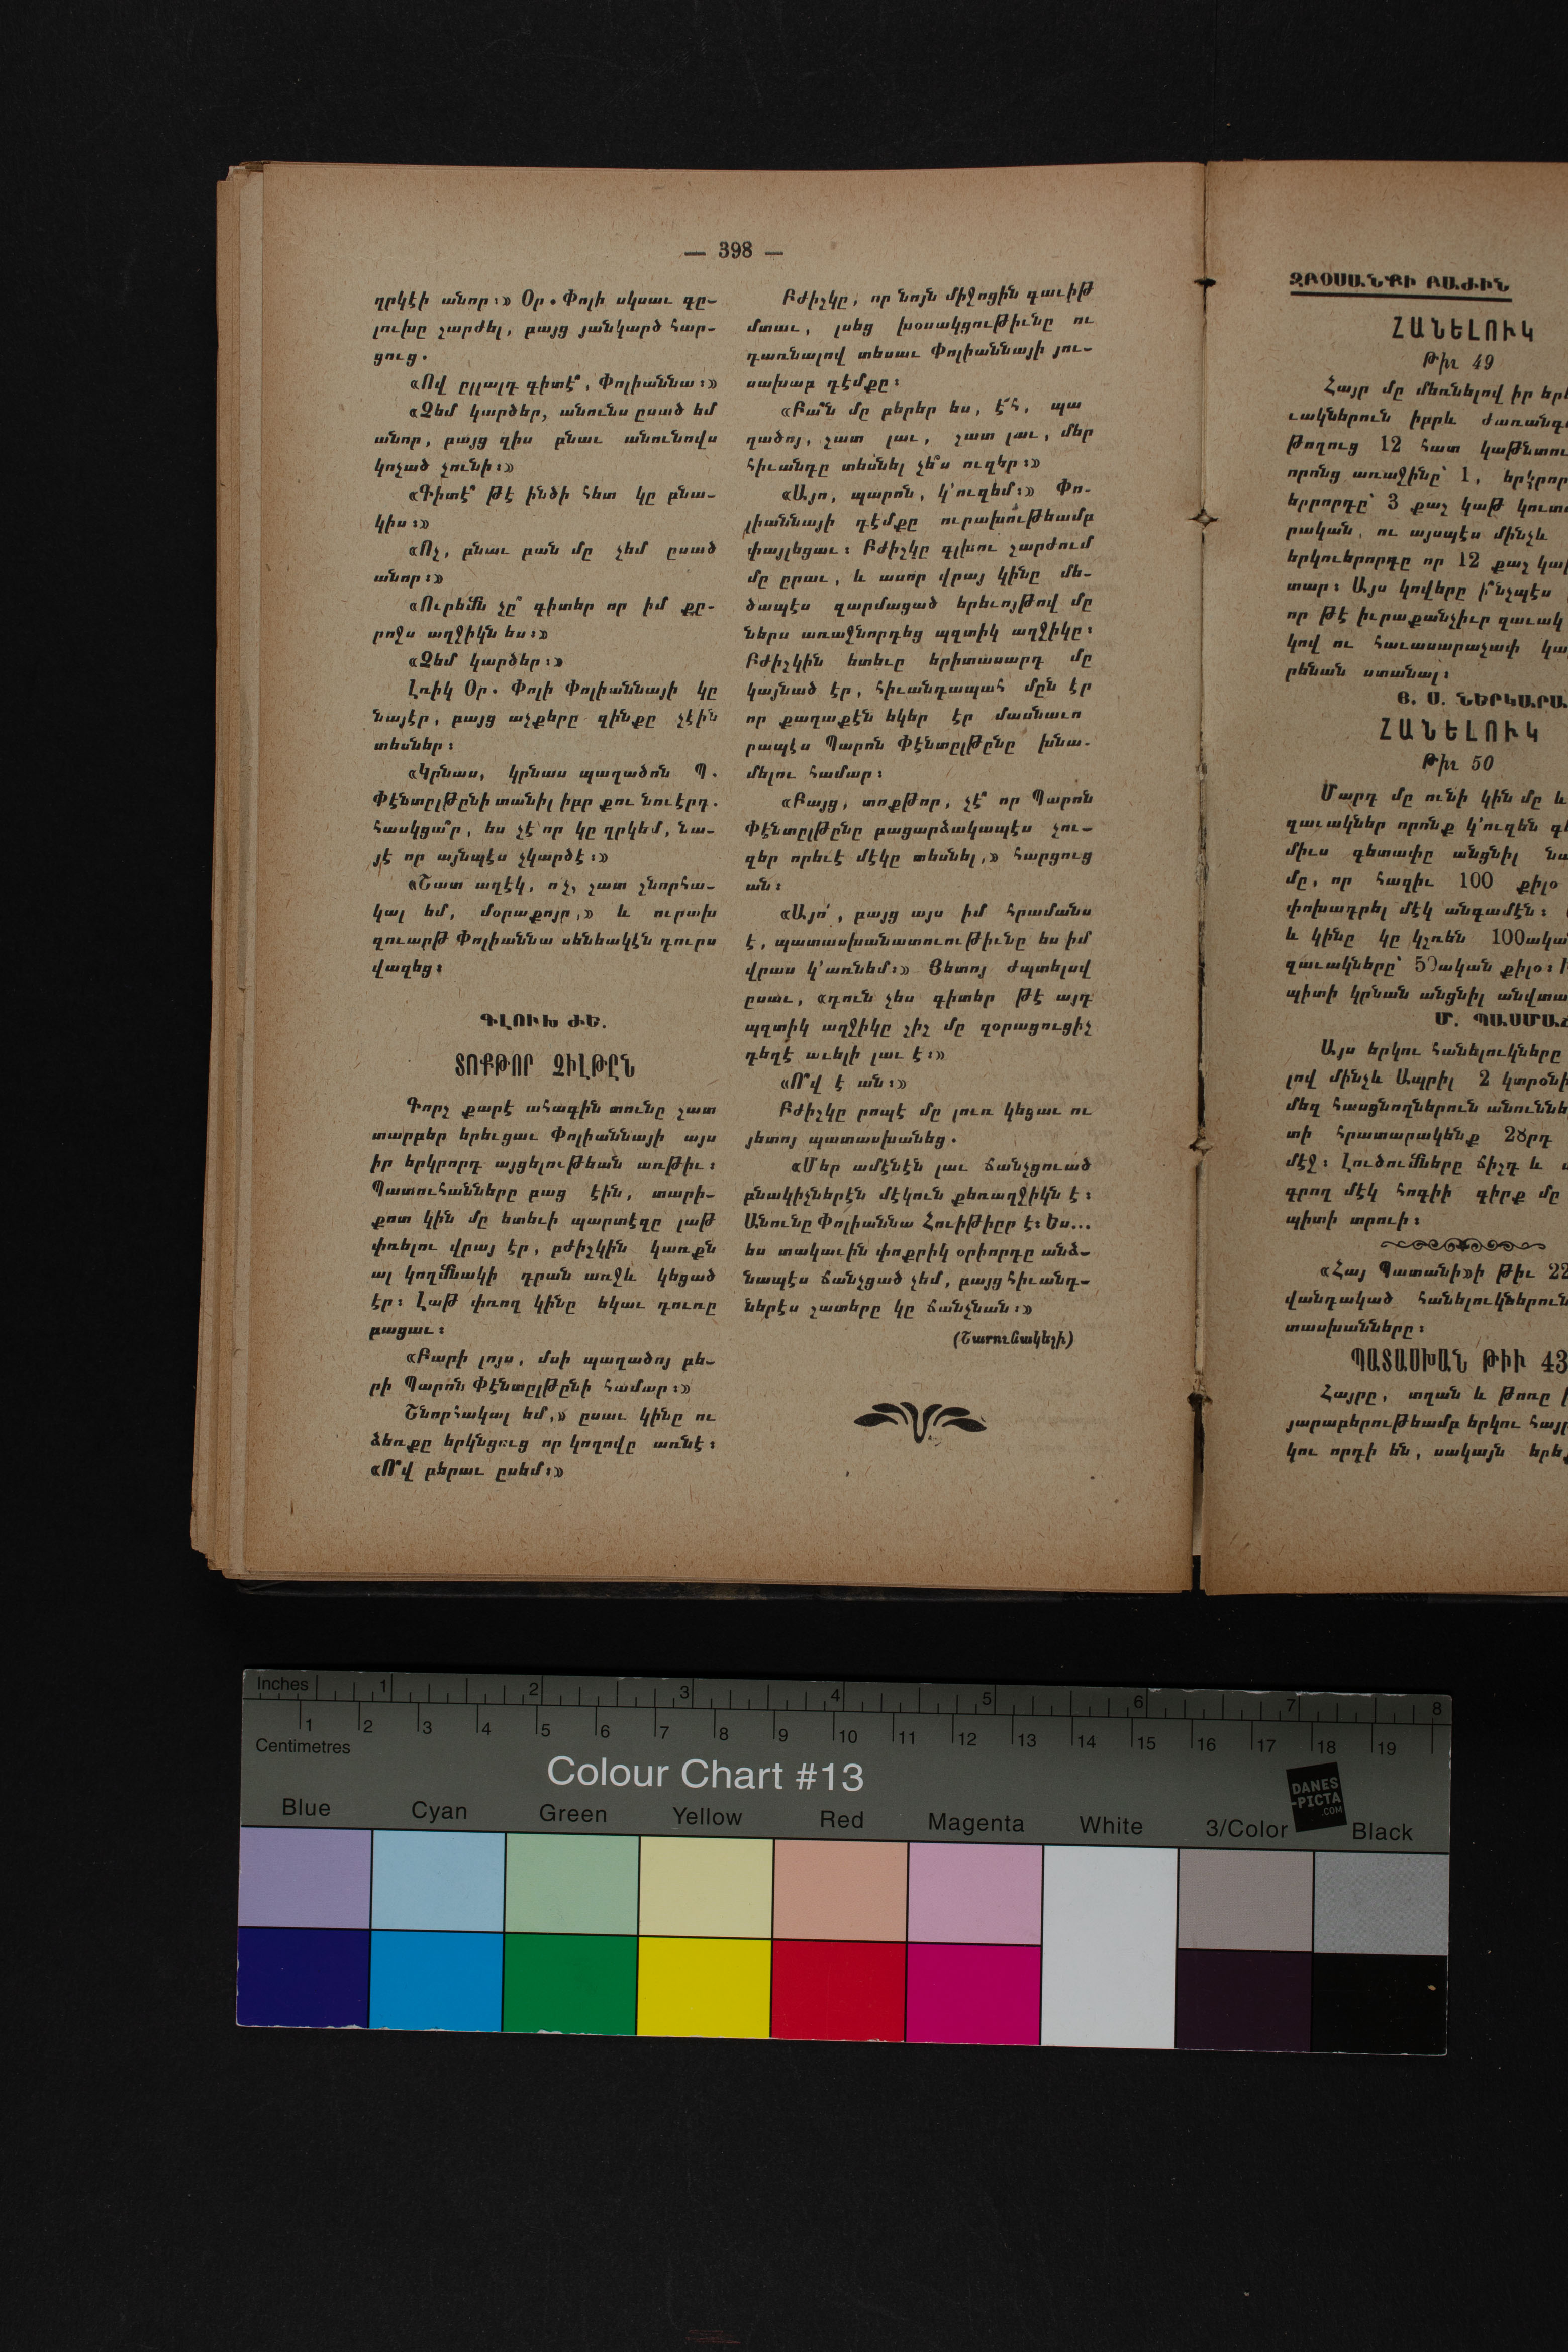 — 398 —
ղրկէի անոր։» Օր. Փոլի սկսաւ գը-
լուխը շարժել, բայց յանկարծ հար-
ցուց.
«Ով ըլլալդ գիտէ՞, Փոլիաննա։»
«Չեմ կարծեր, անունս ըսած եմ
անոր, բայց զիս բնաւ անունովս
կոչած չունի։»
«Գիտէ՞ թէ ինծի հետ կը բնա-
կիս։»
«Ոչ, բնաւ բան մը չեմ ըսած
անոր։»
«Ուրեմն չը՞ գիտեր որ իմ քը-
րոջս աղջիկն ես։»
«Չեմ կարծեր։»
Լռիկ Օր. Փոլի Փոլիաննայի կը
նայէր, բայց աչքերը զինքը չէին
տեսներ։
«Կրնաս, կրնաս պաղածոն Պ.
Փէնտըլթընի տանիլ իբր քու նուէրդ.
հասկցա՞ր, ես չէ որ կը ղրկեմ, նա-
յէ որ այնպէս չկարծէ։»
«Շատ աղէկ, ո՛չ, շատ շնորհա-
կալ եմ, մօրաքոյր,» և ուրախ
զուարթ Փոլիաննա սենեակէն դուրս
վազեց։
ԳԼՈՒԽ ԺԵ.
ՏՈՔԹՈՐ ՉԻԼԹԸՆ
Գորշ քարէ ահագին տունը շատ
տարբեր երեւցաւ Փոլիաննայի այս
իր երկրորդ այցելութեան առթիւ։
Պատուհանները բաց էին, տարի-
քոտ կին մը ետեւի պարտէզը լաթ
փռելու վրայ էր, բժիշկին կառքն
ալ կողմնակի դրան առջև կեցած
էր։ Լաթ փռող կինը եկաւ դուռը
բացաւ։
«Բարի լոյս, մսի պաղածոյ բե-
րի Պարոն Փէնտըլթընի համար։»
Շնորհակալ եմ,» ըսաւ կինը ու
ձեռքը երկնցուց որ կողովը առնէ։
«Ո՞վ բերաւ ըսեմ։»
Բժիշկը, որ նոյն միջոցին գաւիթ
մտաւ, լսեց խօսակցութիւնը ու
դառնալով տեսաւ Փոլիաննայի յու-
սախաբ դէմքը։
«Բա՞ն մը բերեր ես, է՜հ, պա
ղածոյ, շատ լաւ, շատ լաւ, մեր
հիւանդը տեսնել չե՞ս ուզեր։»
«Այո, պարոն, կ՚ուզեմ։» Փո-
լիաննայի դէմքը ուրախութեամբ
փայլեցաւ։ Բժիշկը գլխու շարժում
մը ըրաւ, և ասոր վրայ կինը մե-
ծապէս զարմացած երեւոյթով մը
ներս առաջնորդեց պզտիկ աղջիկը։
Բժիշկին ետեւը երիտասարդ մը
կայնած էր, հիւանդապահ մըն էր
որ քաղաքէն եկեր էր մասնաւո
րապէս Պարոն Փէնտըլթընը խնա-
մելու համար։
«Բայց, տոքթոր, չէ՞ որ Պարոն
Փէնտըլթընը բացարձակապէս չու-
զեր որեւէ մէկը տեսնել,» հարցուց
ան։
«Այո՛, բայց այս իմ հրամանս
է, պատասխանատուութիւնը ես իմ
վրաս կ՚առնեմ։» Յետոյ ժպտելով
ըսաւ, «դուն չես գիտեր թէ այդ
պզտիկ աղջիկը շիշ մը զօրացուցիչ
դեղէ աւելի լաւ է։»
«Ո՞վ է ան։»
Բժիշկը րոպէ մը լուռ կեցաւ ու
յետոյ պատասխանեց.
«Մեր ամէնէն լաւ ճանչցուած
բնակիչներէն մէկուն քեռաղջիկն է։
Անունը Փոլիաննա Հուիթիըր է։ Ես...
ես տակաւին փոքրիկ օրիորդը անձ-
նապէս ճանչցած չեմ, բայց հիւանդ-
ներէս շատերը կը ճանչնան։»
(Շարունակելի)
ԶԲՕՍԱՆՔԻ ԲԱԺԻՆ
ՀԱՆԵԼՈՒԿ
Թիւ 49
Հայր մը մեռնելով իր
ւակներուն իբրև
թողուց 12 հատ
որոնց առաջինը՝ 1,
երրորդը՝ 3 քաշ կաթ
րական, ու այսպէս մինչև
երկուերորդը որ 12 քաշ
տար։ Այս կովերը ի՞նչպէս
որ թէ իւրաքանչիւր զաւակ
կով ու հաւասարաչափ
րենան ստանալ։
Յ. Ս.
ՀԱՆԵԼՈՒԿ
Թիւ 50
Մարդ մը ունի կին մը և
զաւակներ որոնք կ՚ուզեն
միւս գետափը անցնիլ
մը, որ հազիւ 100 քիլօ
փոխադրել մէկ անգամէն։
և կինը կը կշռեն
զաւակները՝ 50ական քիլօ։
պիտի կրնան անցնիլ
Մ.
Այս երկու հանելուկները
լով մինչև Ապրիլ 2
մեզ հասցնողներուն
տի հրատարակենք 28րդ
մէջ։ Լուծումները ճիշդ և
գրող մէկ հոգիի գիրք մը
պիտի տրուի։
«Հայ Պատանի»ի թիւ
վանդակած հանելուկներուն
տասխանները։
ՊԱՏԱՍԽԱՆ ԹԻՒ 43
Հայրը, տղան և թոռը
յարաբերութեամբ երկու
կու որդի են, սակայն
Inches 1 2 3 4 5 6 7 8
1 2 3 4 5 6 7 8 9 10 11 12 13 14 15 16 17 18 19
Centimetres
Colour Chart #13
DANES
-PICTA
.COM
Blue Cyan Green Yellow Red Magenta White 3/Color Black